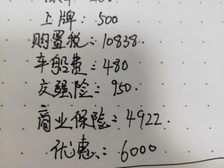 上牌：500
购置税：10838.
车船费：480
交强险：950.
商业保险：4922.
优惠：6000